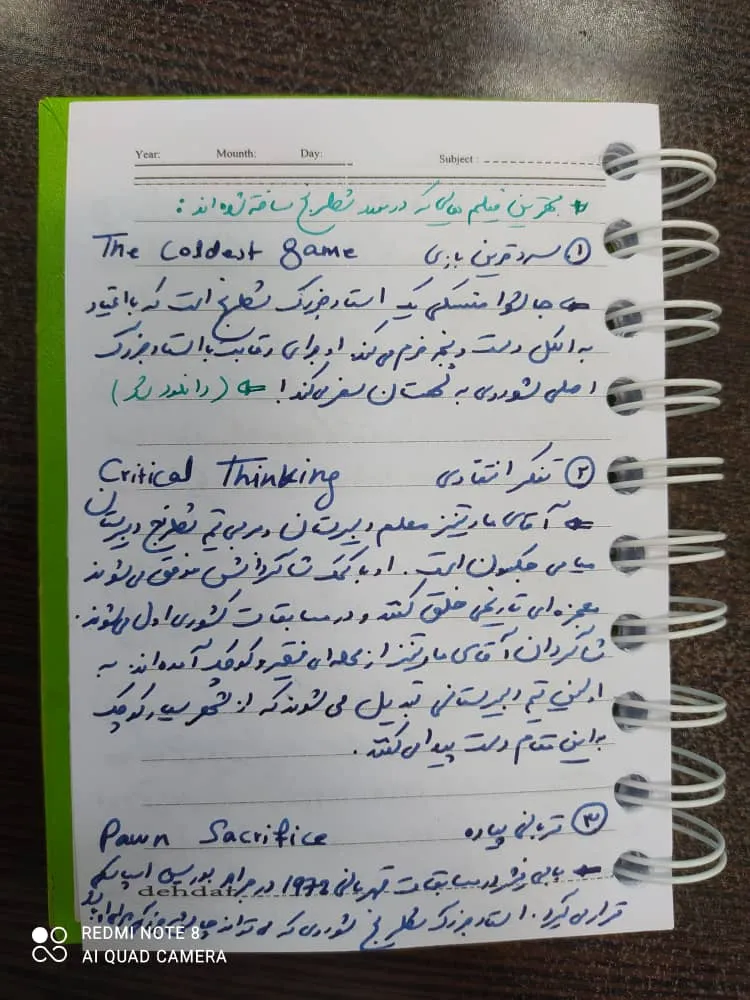 Year: Mounth: Day: Subject :
* بهترین فیلم هایی که در مورد شطرنج ساخته شده اند :
① سردترین بازی The Coldest Game
جاشوا منسکی یک استاد بزرگ شطرنج است که با اعتیاد
به الکل دست و پنجه نرم می‌کند. او برای رقابت با استاد بزرگ
اصلی شوروی به لهستان سفر می‌کند!
② تفکر انتقادی Critical Thinking
آقای مارتینز معلم دبیرستان و مربی تیم شطرنج دبیرستان
میامی جکسون است. او با کمک شاگردانش موفق می‌شوند
معجزه ای تاریخی خلق کنند و در مسابقات کشوری اول می‌شوند.
شاگردان آقای مارتینز از محله ای فقیر و کوچک آمده اند. به
اولین تیم دبیرستانی تبدیل می شوند که از شهر بسیار کوچک
به این مقام دست پیدا می کنند.
③ قربانی پیاده Pawn Sacrifice
بابی فیشر در مسابقات قهرمانی 1972 در برابر بوریس اسپاسکی
dehdar
قرار می گیرد. استاد بزرگ شطرنج شوروی که می تواند
REDMI NOTE 8
AI QUAD CAMERA